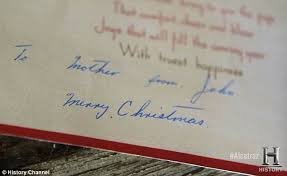 to you the joys
That comfort cheer and bless
Joys that will fill the coming year
With truest happiness
To Mother from John
Merry Christmas
#Alcatraz H
HISTORY
© History Channel